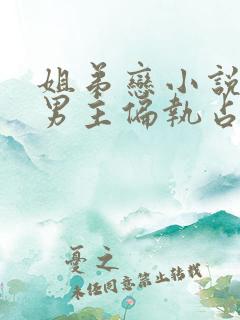 姐弟戀小說
男主偏執占
憂之
未经同意禁止转载